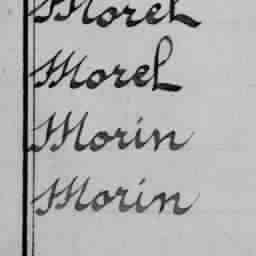 Morel
Morel
Morin
Morin